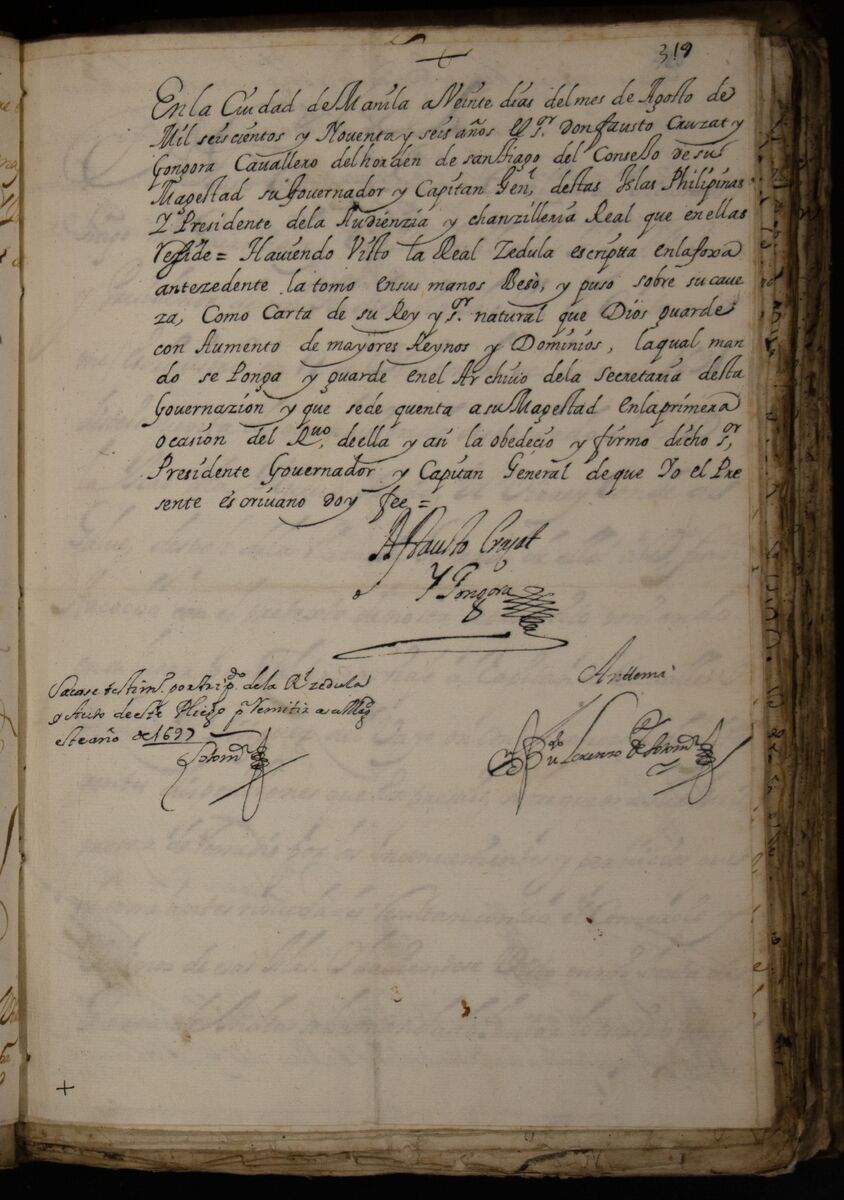 319
En la Ciudad de Manila a Veinte dias del mes de Agosto de
Mil seiscientos y Noventa y seis años el Sr. don fausto Cruzat y
Gongora Cavallero del horden de santiago del Consejo de su
Magestad su Governador y Capitan Genl, destas Islas Philipinas
Y Presidente dela Audienzia y chanzilleria Real que en ellas
Reside = Haviendo Visto la Real Zedula escripta en la foxa
antezedente la tomo en sus manos Besò, y puso sobre su cave
za, Como Carta de su Rey y Sr. natural que Dios guarde
con Aumento de mayores Reynos y Dominios, la qual man
do se Ponga y guarde en el Archivo dela Secretaria desta
Governazion y que se de quenta a su Magestad en la primera
ocasion del Rvo, de ella y asi la obedecio y firmo dicho Sr,
Presidente Governador y Capitan General de que Yo el Pre
sente escrivano doy fee =
Dn fausto Cruzat
Y Gongora
Sacase testimo. por tripdo. de la Rl zedula
y Auto de este Pliego pa Remitir a su Magd
este año de 1697
Antte mi